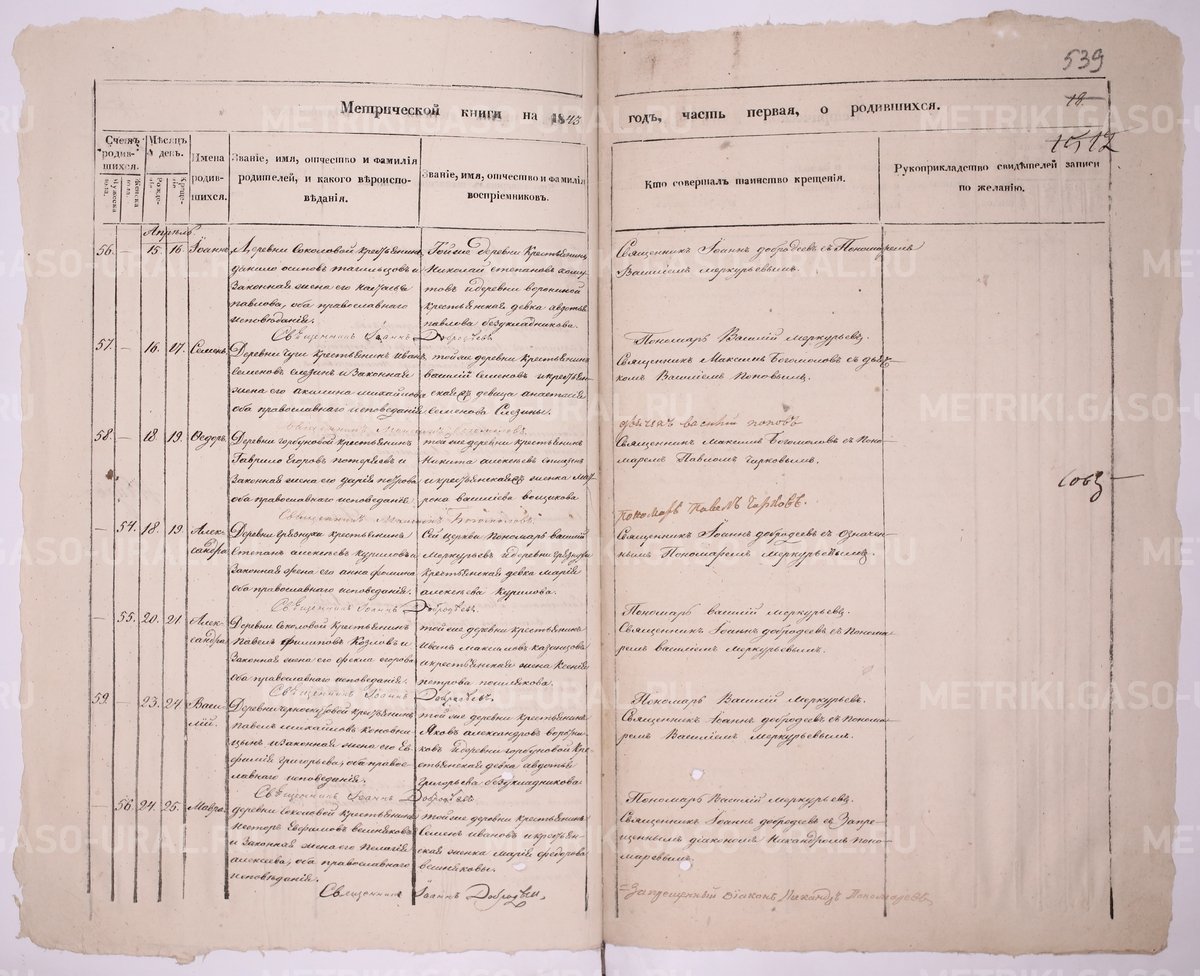 539
Метрической книги на 1843
годъ, часть первая, о родившихся.
18.
1512
Счетъ родившихся.
Мѣсяцъ и день.
Имена родившихся.
Званіе, имя, отчество и фамилія родителей, и какого вѣроисповѣданія.
Званіе, имя, отчество и фамилія воспріемниковъ.
Кто совершалъ таинство крещенія.
Рукоприкладство свидѣтелей записи по желанію.
Апрѣль
56. — 15. 16. Іоаннъ
Деревни Соколовой крестьянинъ
данило осиповъ тагильцовъ и
Законная жена его наталья
павлова, оба православнаго
исповѣданія.
Тойже деревни Крестьянинъ
Николай степановъ
и деревни ворониной
крестьянская девка авдотья
павлова бездкладникова
Священникъ Іоаннъ добродеевъ съ Пономаремъ
Василіемъ меркурьевымъ.
Священникъ Іоаннъ Добродѣевъ
Пономарь Василій меркурьевъ.
57. — 16. 17. Семенъ
Деревни крестьянинъ иванъ
семеновъ слезинъ и Законная
жена его акилина михайлова
оба православнаго исповеданія
тойже деревни крестьянинъ
василій семеновъ и крестьянская
девица анастасія
семенова Слезины.
Священникъ Максимъ Богомоловъ съ дьячкомъ
Василіемъ Поповымъ.
Священникъ Максимъ Богомоловъ
дьячекъ василій поповъ
58. — 18. 19. Ѳедоръ
Деревни горбуновой крестьянинъ
Гаврило Егоровъ потеряевъ и
Законная жена его дарія петрова
оба православнаго исповеданія
тойже деревни крестьянинъ
Никита алексѣевъ
и крестьянская женка матрона
василіева
Священникъ Максимъ Богомоловъ съ Пономаремъ
Павломъ Чирковымъ.
Священникъ Максимъ Богомоловъ
пономарь Павелъ Чирковъ.
— 54. 18. 19. Александра
Деревни грязнухи крестьянинъ
Степанъ алексѣевъ куриловъ и
Законная жена его анна фомина
оба православнаго исповеданія.
Сей церкви Пономарь василій
Меркурьевъ и деревни грязнухи
крестьянская девка марія
алексѣева Курилова.
Священникъ Іоаннъ добродеевъ съ означеннымъ
Пономаремъ Меркурьевымъ.
Священникъ Іоаннъ Добродѣевъ.
Пономарь василій меркурьевъ.
— 55. 20. 21. Александра
Деревни Соколовой Крестьянинъ
Павелъ филиповъ Козловъ и
Законная жена его фекла егорова
оба православнаго исповѣданія.
тойже деревни крестьянинъ
Иванъ Максимовъ казанцовъ
и крестьянская жена Ксенія
петрова
Священникъ Іоаннъ добродеевъ съ Пономаремъ
василіемъ меркурьевымъ.
Священникъ Іоаннъ Добродѣевъ.
Пономарь Василій Меркурьевъ.
59. — 23. 24. Василій.
Деревни черноскутовой крестьянинъ
Павелъ михайловъ Коновницынъ
и Законная жена его Евфимія
григорьева, оба православнаго
исповеданія.
тойже деревни крестьянинъ
Яковъ александровъ
и деревни горбуновой Крестьянская
девка авдотья
Григорьева бездкладникова
Священникъ Іоаннъ добродеевъ съ Пономаремъ
Василіемъ Меркурьевымъ.
Священникъ Іоаннъ Добродѣевъ.
Пономарь Василій Меркурьевъ.
— 56. 24. 25. Мавра.
деревни соколовой крестьянинъ
Несторъ Евфимовъ
и Законная жена его Пелагія
алексѣева, оба православнаго
исповѣданія.
тойже деревни крестьянинъ
Семенъ ивановъ и крестьянская
женка марія федорова
Священникъ Іоаннъ добродеевъ съ Запрещеннымъ
діакономъ Никандромъ Пономаревымъ.
Священникъ Іоаннъ Добродѣевъ.
Запрещенный діаконъ Никандръ Пономаревъ
METRIKI.GASO-URAL.RU